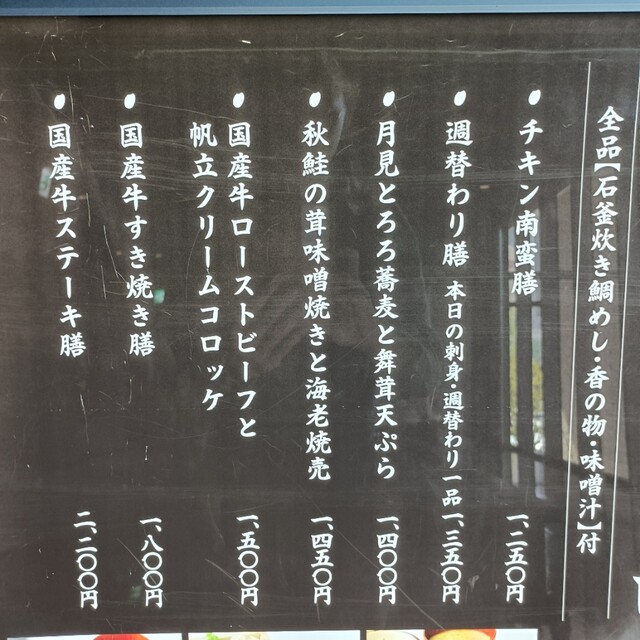 全品【石釜炊き鯛めし・香の物・味噌汁】付
チキン南蛮膳 一、二五〇円
週替わり膳 本日の刺身・週替わり一品 一、三五〇円
月見とろろ蕎麦と舞茸天ぷら 一、四〇〇円
秋鮭の茸味噌焼きと海老焼売 一、四五〇円
国産牛ローストビーフと
帆立クリームコロッケ 一、五〇〇円
国産牛すき焼き膳 一、八〇〇円
国産牛ステーキ膳 二、二〇〇円